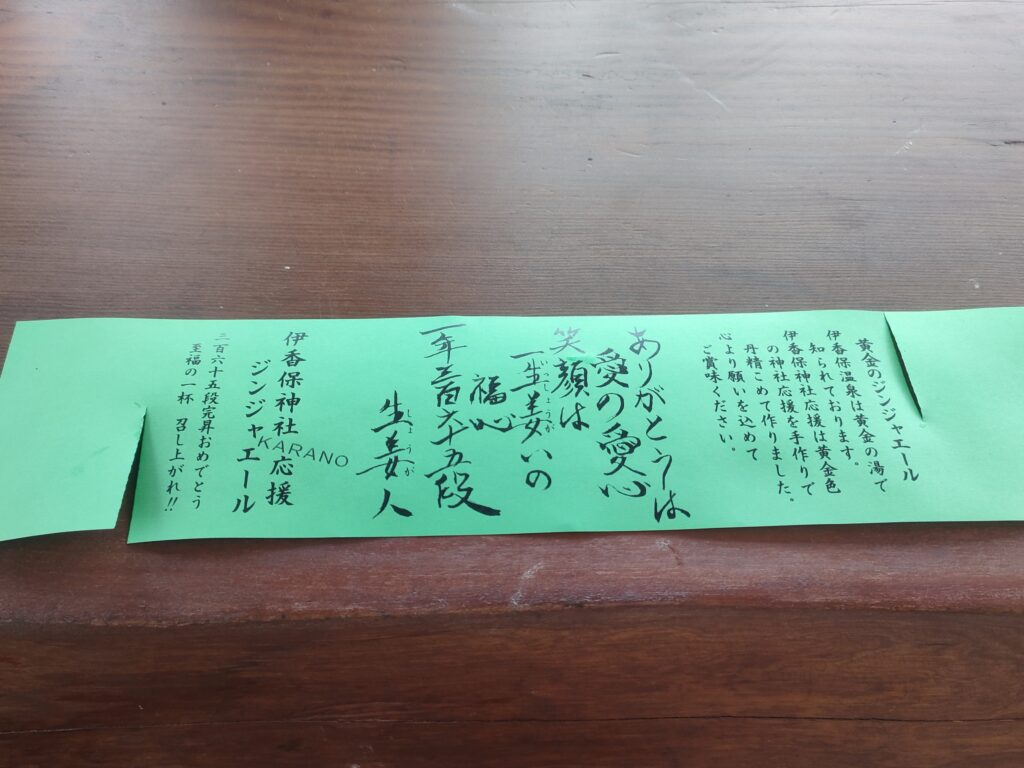 黄金のジンジャエール
伊香保温泉は黄金の湯で
知られております。
伊香保神社応援は黄金色
の神社応援を手作りで
丹精こめて作りました。
心より願いを込めて
ご賞味ください。
ありがとうは
愛の愛心
笑顔は
一生姜いの
いっしょうが
福心
一年三百六十五段
生姜人
しょうが
伊香保神社応援
ジンジャエール
KARANO
三百六十五段完昇おめでとう
至福の一杯 召し上がれ!!